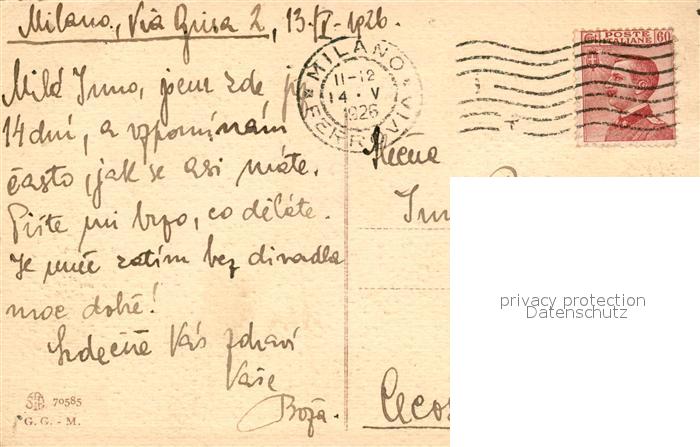 Milano, Via Brisa 2, 13/V-1926.
Milá Irmo, jsem zde již
14 dní, a vzpomínám
často, jak se asi máte.
Pište mi brzo, co děláte.
Je mně zatím bez divadla
moc dobře!
Srdečně Vás zdraví
Vaše
Boža.
MILANO
11-12
14 · V
1926
FERROVIA
POSTE
ITALIANE
60
Slečna
Cecos
70585
G. G. - M.
privacy protection
Datenschutz